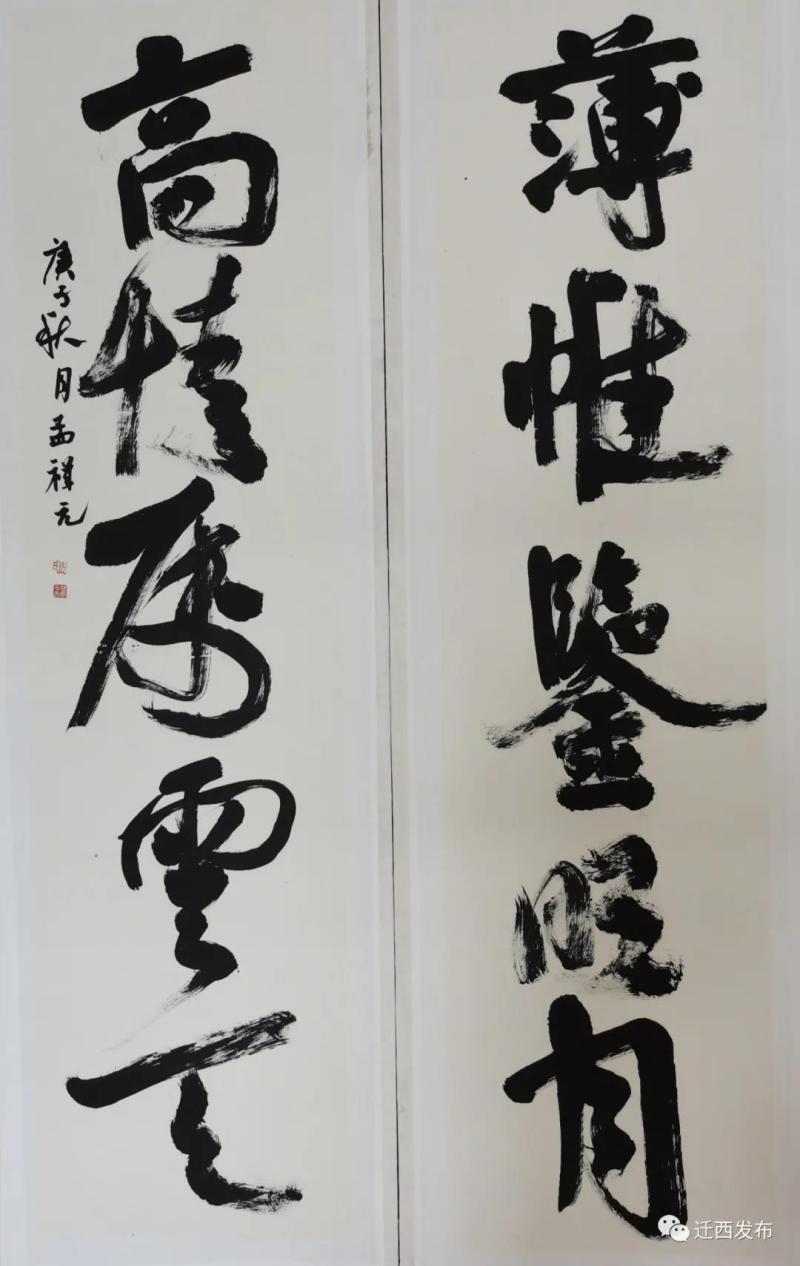 薄帷鑒明月
高情属雲天
庚子秋月孟祥元
迁西发布